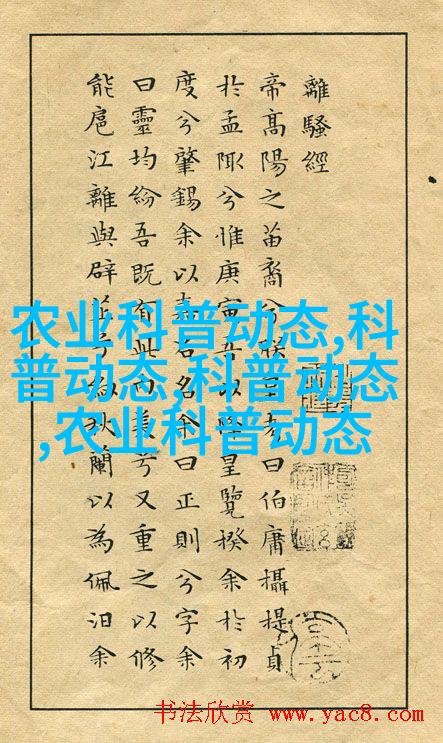 離騷經
帝高陽之苗裔兮朕皇考曰伯庸攝提貞
於孟陬兮惟庚寅吾以降皇覽揆余於初
度兮肇錫余以嘉名名余曰正則兮字余
曰靈均紛吾既有此內美兮又重之以修
能扈江離與辟芷兮紉秋蘭以為佩汨余
农业科普动态,科
普动态,科普动态
,农业科普动态
书法欣赏 www.yac8.com